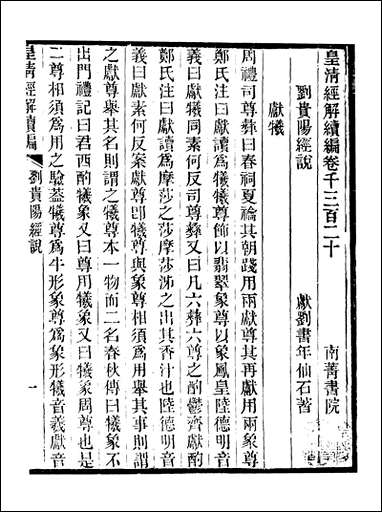 皇清經解續編卷千三百二十
南菁書院
劉貴陽經說
獻劉書年仙石著
獻犧
周禮司尊彝曰春祠夏禴其朝踐用兩獻尊其再獻用兩象尊
鄭氏注曰獻讀爲犧犧尊飾以翡翠象尊以象鳳皇陸德明音
義曰獻犧同素何反司尊彝又曰凡六彝六尊之酌鬱齊獻酌
鄭氏注曰獻讀爲摩莎之莎摩莎泲之出其香汁也陸德明音
義曰獻素何反案獻尊卽犧尊與象尊相須爲用舉其事則謂
之獻尊舉其名則謂之犧尊本一物而二名春秋傳曰犧象不
出門禮記曰君西酌犧象又曰尊用犧象周尊也是
二尊相須爲用之驗葢犧尊爲牛形象尊爲象形犧音義獻音
皇清經解續編
劉貴陽經說
一